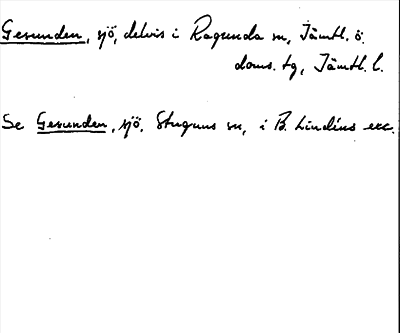 Gesunden, sjö, delvis i Ragunda sn, Jämtl. ö.
doms. tg, Jämtl. l.
Se Gesunden, sjö, Stuguns sn, i B. Lindéns exc.